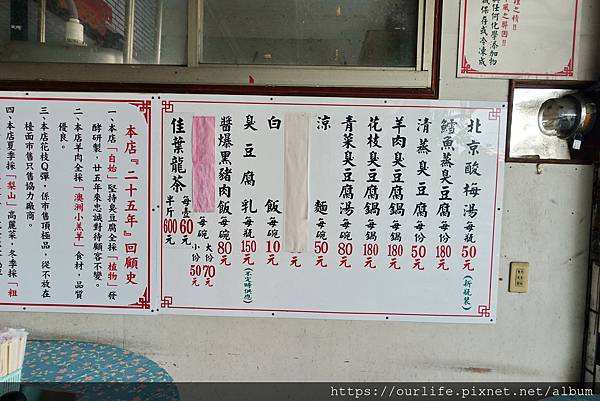 理之精！
與任何化學添加物
誠保存或冷凍成
風之弊因!!
北京酸梅湯 每瓶50元(新瓶裝)
鱈魚蒸臭豆腐 每份180元
清蒸臭豆腐 每份50元
羊肉臭豆腐鍋 每鍋180元
花枝臭豆腐鍋 每鍋180元
青菜臭豆腐湯 每碗80元
涼麵 每碗50元
白飯 每碗10元
臭豆腐乳 每瓶150元(不定時供應)
醬爆黑豬肉飯 每碗80元
每碗 大份70元 小份50元
佳葉龍茶 每壺60元 半斤600元
本店『二十五年』回顧史
一、本店「自始」堅持臭豆腐全採「植物」發
酵研製，廿五年來忠誠對待顧客不變。
二、本店羊肉全採「澳洲小羔羊」食材，品質
優良。
三、本店花枝Q彈，係市售頂極品，從不放在
檯面市售只售協力廠商。
四、本店夏季採「梨山」高麗菜，冬季採「粗
https://ourlife.pixnet.net/album